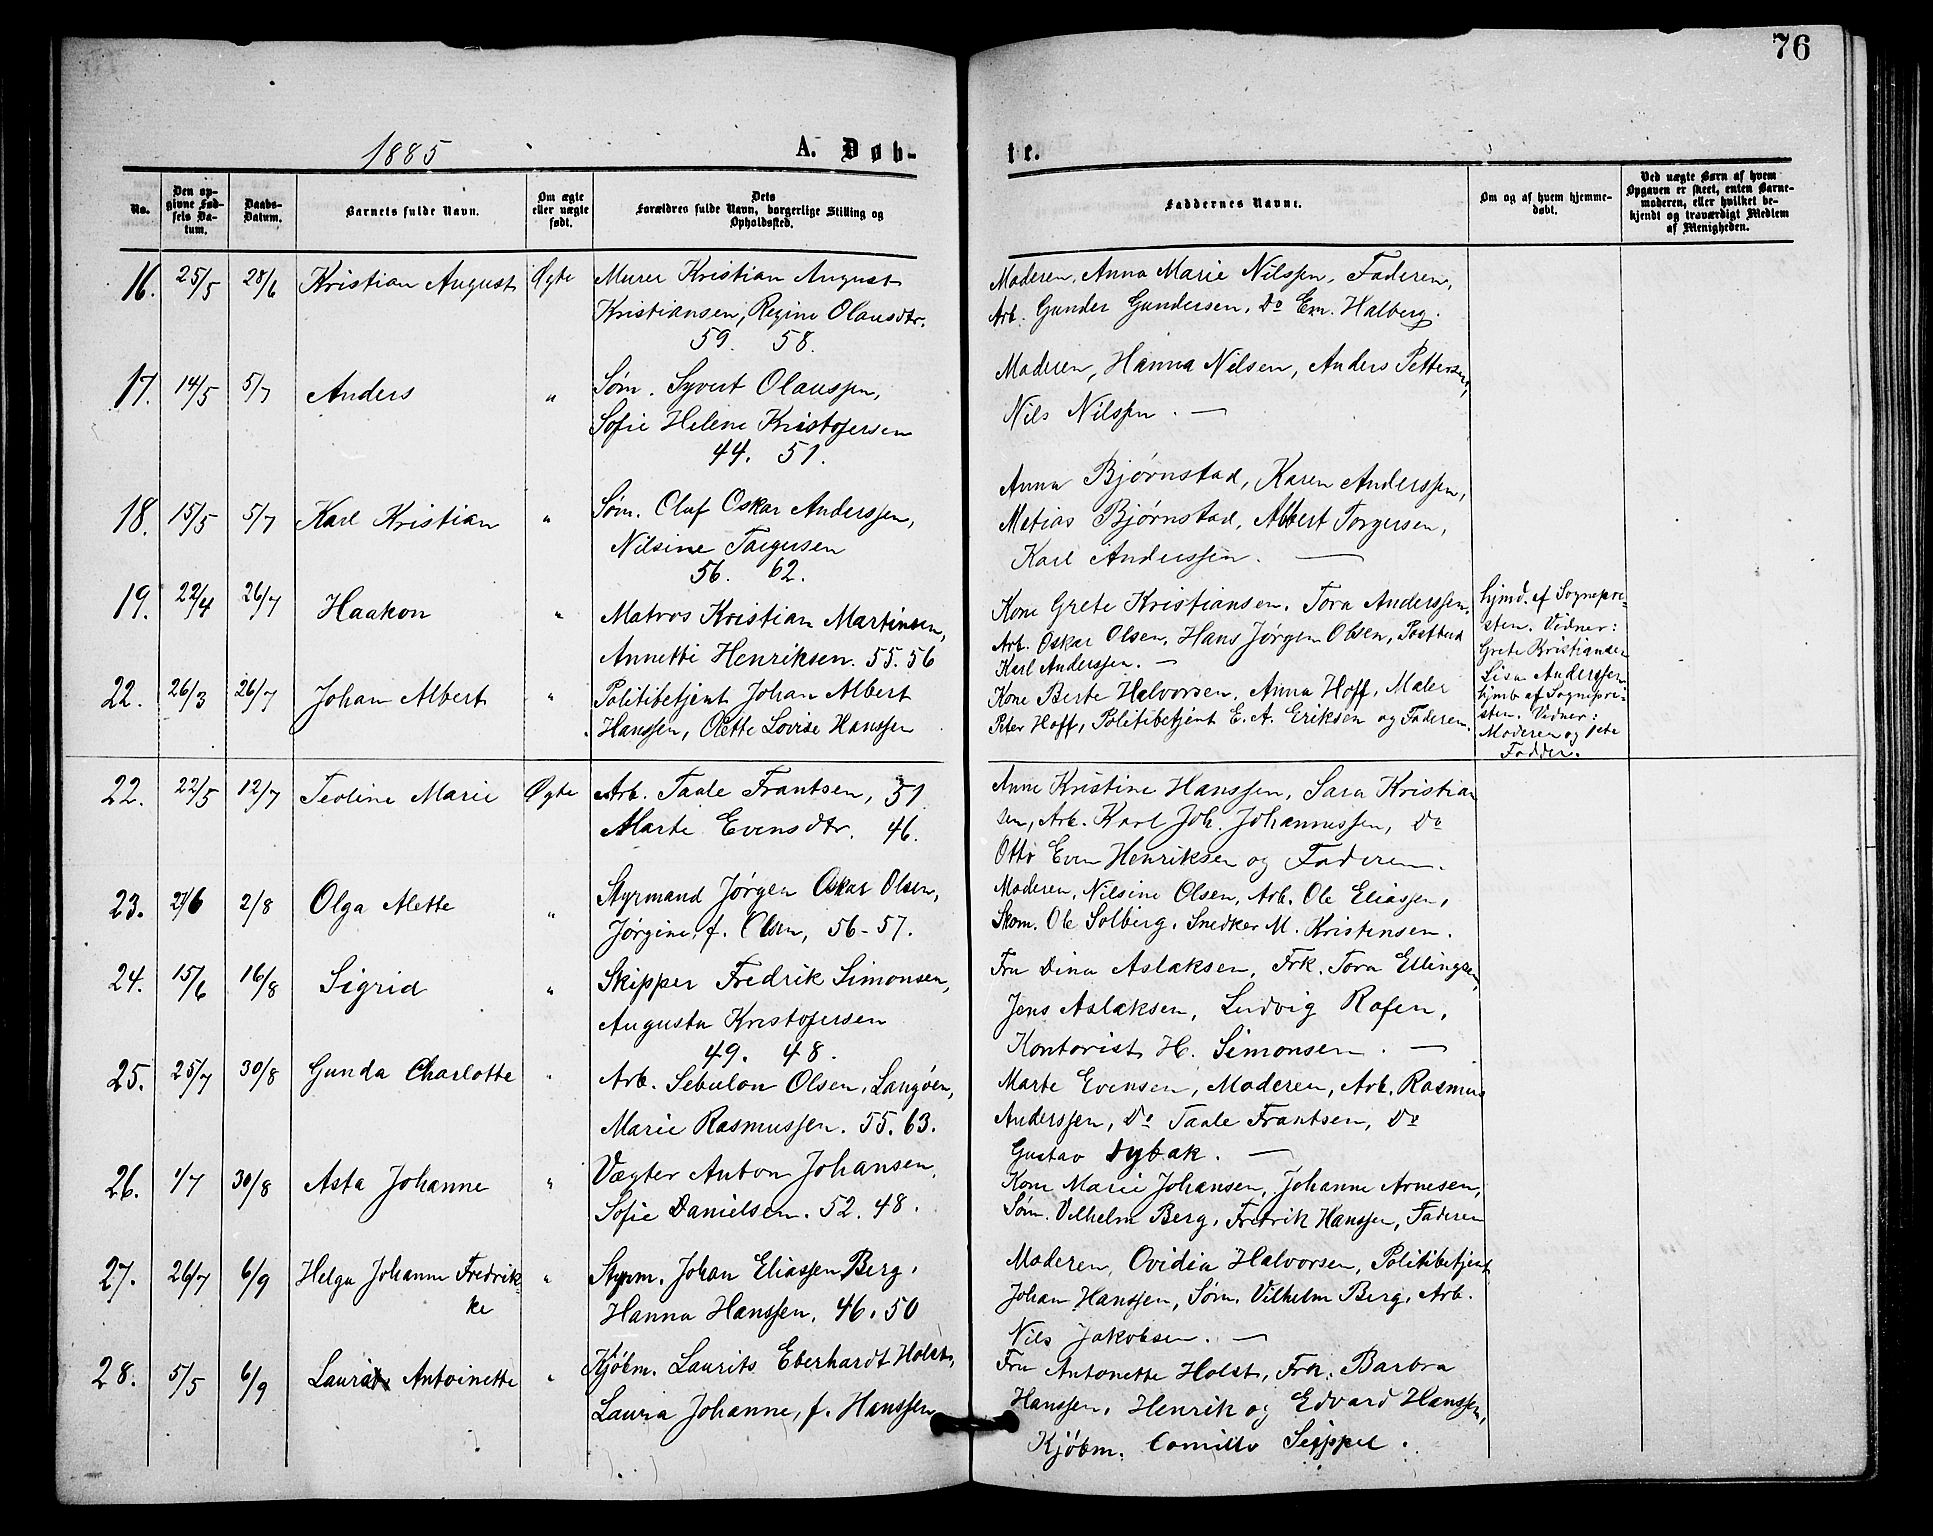 76
1885
A. Døb-
te.
No.
Den op-
givne Fød-
sels Da-
tum.
Daabs-
Datum.
Barnets fulde Navn.
Om ægte
eller uægte
født.
Dets
Forældres fulde Navn, borgerlige Stilling og
Opholdssted.
Faddernes Navne.
Om og af hvem hjemme-
døbt.
Ved uægte Børn af hvem
Opgaven er skeet, enten Barne-
moderen, eller hvilket be-
kjendt og troværdigt Medlem
af Menigheden.
16. 25/5 28/6 Kristian August Øgte Murer Kristian August
Kristiansen, Regine Olausdtr.
59. 58.
Moderen, Anna Marie Nilssen, Faderen,
Arb. Gunder Gundersen, Do Em. Halberg.
17. 14/5 5/7 Anders " Søm. Syvert Olaussen,
Sofie Helene Kristofersen
44. 51.
Moderen, Hanna Nilsen, Anders Pettersen,
Nils Nilssen. —
18. 15/5 5/7 Karl Kristian " Søm. Oluf Oskar Anderssen,
Nilsine Torgersen
56. 62.
Anna Bjørnstad, Karen Anderssen,
Metias Bjørnstad, Albert Torgersen,
Karl Anderssen. —
19. 22/4 26/7 Haakon " Matros Kristian Martinsen,
Annette Henriksen. 55. 56
Kone Grete Kristiansen, Tora Anderssen,
Arb. Oskar Olsen, Hans Jørgen Olsen, Postbud
Karl Anderssen. —
hjmd. af Sognepre-
sten. Vidner:
Grete Kristiansen
Lisa Anderssen
22. 26/3 26/7 Johan Albert " Politibetjent Johan Albert
Hanssen, Olette Lovise Hanssen
Kone Berte Halvorsen, Anna Hoff, Maler
Peter Hoff, Politibetjent E. A. Eriksen og Faderen.
hjmb af Sognepre-
sten. Vidner:
Moderen og 1ste
Fadder.
22. 22/5 12/7 Teoline Marie Øgte Arb. Taale Frantsen, 51
Marte Evensdtr. 46.
Anne Kristine Hanssen, Sara Kristian
sen, Arb. Karl Joh. Johannessen, Do
Otto Even Henriksen og Faderen.
23. 2/6 2/8 Olga Alette " Styrmand Jørgen Oskar Olsen,
Jørgine, f. Olsen, 56-57.
Moderen, Nilsine Olsen, Arb. Ole Eliassen,
Skom. Ole Solberg, Snedker M. Kristensen.
24. 15/6 16/8 Sigrid " Skipper Fredrik Simonsen,
Augusta Kristofersen
49. 48.
Fru Dina Aslaksen, Frk. Tora Ellingsen,
Jens Aslaksen, Ludvig Rafen,
Kontorist H. Simonsen. —
25. 25/7 30/8 Gunda Charlotte " Arb. Sebulon Olsen, Langøen,
Marie Rasmussen. 55. 63.
Marte Evensen, Moderen, Arb. Rasmus
Anderssen, Do Taale Frantsen, Do
Gustav Dybak. —
26. 1/7 30/8 Asta Johanne " Vægter Anton Johansen,
Sofie Danielsen. 52. 48.
Kone Marie Johansen, Johanne Arnesen,
Søm. Vilhelm Berg, Fredrik Hanssen, Faderen
27. 26/7 6/9 Helga Johanne Fredrik-
ke " Styrm. Johan Eliassen Berg,
Hanna Hanssen. 46. 50
Moderen, Ovidia Halvorsen, Politibetjent
Johan Hanssen, Søm. Vilhelm Berg, Arb.
Nils Jakobsen. —
28. 5/5 6/9 Antoinette " Kjøbm. Laurits Eberhardt Holst,
Laura Johanne, f. Hanssen
Fru Antonette Holst, Frk. Barbra
Hanssen, Henrik og Edvard Hanssen,
Kjøbm. Camillo Seippel.